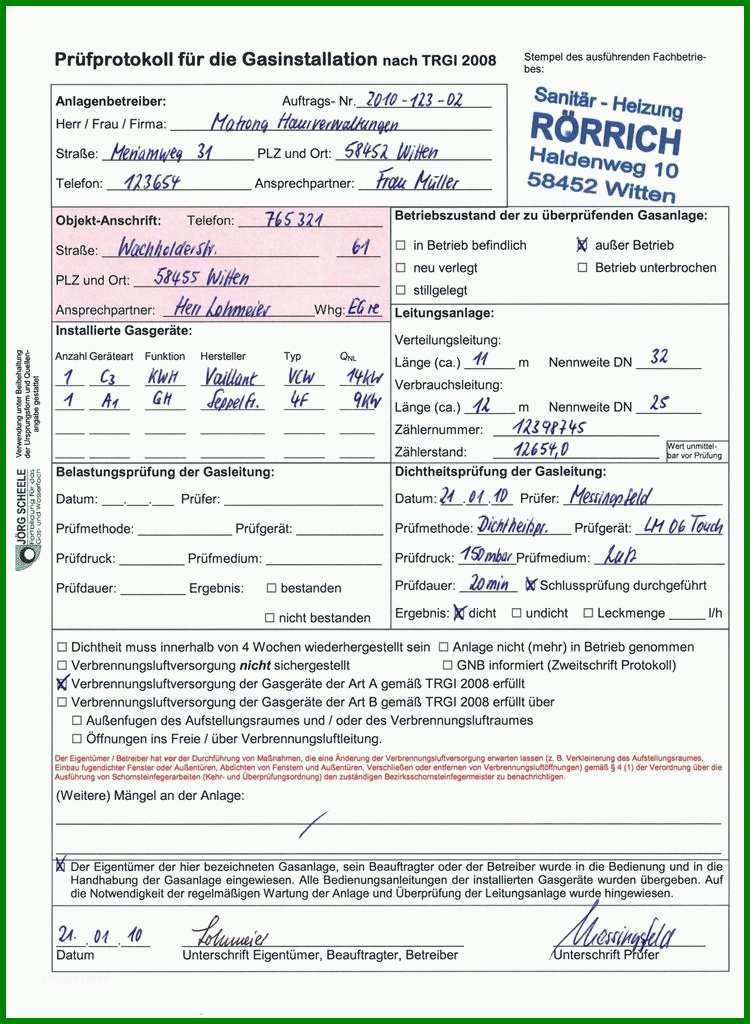 Prüfprotokoll für die Gasinstallation nach TRGI 2008
Stempel des ausführenden Fachbetrie-
bes:
Sanitär - Heizung
RÖRRICH
Haldenweg 10
58452 Witten
Anlagenbetreiber: Auftrags- Nr. 2010-123-02
Herr / Frau / Firma: Matrong Hausverwaltungen
Straße: Meriamweg 31 PLZ und Ort: 58452 Witten
Telefon: 123654 Ansprechpartner: Frau Müller
Objekt-Anschrift: Telefon: 765321
Straße: Wachholderstr. 61
PLZ und Ort: 58455 Witten
Ansprechpartner: Herr Lohmeier Whg: EG re
Betriebszustand der zu überprüfenden Gasanlage:
☐ in Betrieb befindlich ☒ außer Betrieb
☐ neu verlegt ☐ Betrieb unterbrochen
☐ stillgelegt
Installierte Gasgeräte:
Anzahl Geräteart Funktion Hersteller Typ QNL
1 C3 KWH Vaillant VCW 14KW
1 A1 GH Seppelfr. 4F 9KW
Leitungsanlage:
Verteilungsleitung:
Länge (ca.) 11 m Nennweite DN 32
Verbrauchsleitung:
Länge (ca.) 12 m Nennweite DN 25
Zählernummer: 12398745
Zählerstand: 12654,0
Wert unmittel-
bar vor Prüfung
Verwendung unter Beibehaltung
der Ursprungsform und Quellen-
angabe gestattet
JÖRG SCHEELE
Fortbildung für das
Gas- und Wasserfach
Belastungsprüfung der Gasleitung:
Datum: __.__.__ Prüfer:
Prüfmethode: Prüfgerät:
Prüfdruck: Prüfmedium:
Prüfdauer: Ergebnis: ☐ bestanden
☐ nicht bestanden
Dichtheitsprüfung der Gasleitung:
Datum: 21.01.10 Prüfer: Messingsfeld
Prüfmethode: Dichtheitspr. Prüfgerät: LM 06 Touch
Prüfdruck: 150mbar Prüfmedium: Luft
Prüfdauer: 20min ☒ Schlussprüfung durchgeführt
Ergebnis: ☒ dicht ☐ undicht ☐ Leckmenge ____ l/h
☐ Dichtheit muss innerhalb von 4 Wochen wiederhergestellt sein ☐ Anlage nicht (mehr) in Betrieb genommen
☐ Verbrennungsluftversorgung nicht sichergestellt ☐ GNB informiert (Zweitschrift Protokoll)
☒ Verbrennungsluftversorgung der Gasgeräte der Art A gemäß TRGI 2008 erfüllt
☐ Verbrennungsluftversorgung der Gasgeräte der Art B gemäß TRGI 2008 erfüllt über
☐ Außenfugen des Aufstellungsraumes und / oder des Verbrennungsluftraumes
☐ Öffnungen ins Freie / über Verbrennungsluftleitung.
Der Eigentümer / Betreiber hat vor der Durchführung von Maßnahmen, die eine Änderung der Verbrennungsluftversorgung erwarten lassen (z. B. Verkleinerung des Aufstellungsraumes,
Einbau fugendichter Fenster oder Außentüren, Abdichten von Fenstern und Außentüren, Verschließen oder entfernen von Verbrennungsluftöffnungen) gemäß § 4 (1) der Verordnung über die
Ausführung von Schornsteinfegerarbeiten (Kehr- und Überprüfungsordnung) den zuständigen Bezirksschornsteinfegermeister zu benachrichtigen.
(Weitere) Mängel an der Anlage:
☒ Der Eigentümer der hier bezeichneten Gasanlage, sein Beauftragter oder der Betreiber wurde in die Bedienung und in die
Handhabung der Gasanlage eingewiesen. Alle Bedienungsanleitungen der installierten Gasgeräte wurden übergeben. Auf
die Notwendigkeit der regelmäßigen Wartung der Anlage und Überprüfung der Leitungsanlage wurde hingewiesen.
21.01.10 Lohmeier Messingsfeld
Datum Unterschrift Eigentümer, Beauftragter, Betreiber Unterschrift Prüfer